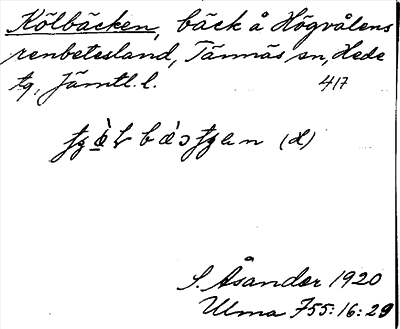 Kölbäcken, bäck å Högvålens
renbetesland, Tännäs sn, Hede
tg, Jämtl. l. 417
(d)
S. Åsander 1920
Ulma 755:16:29